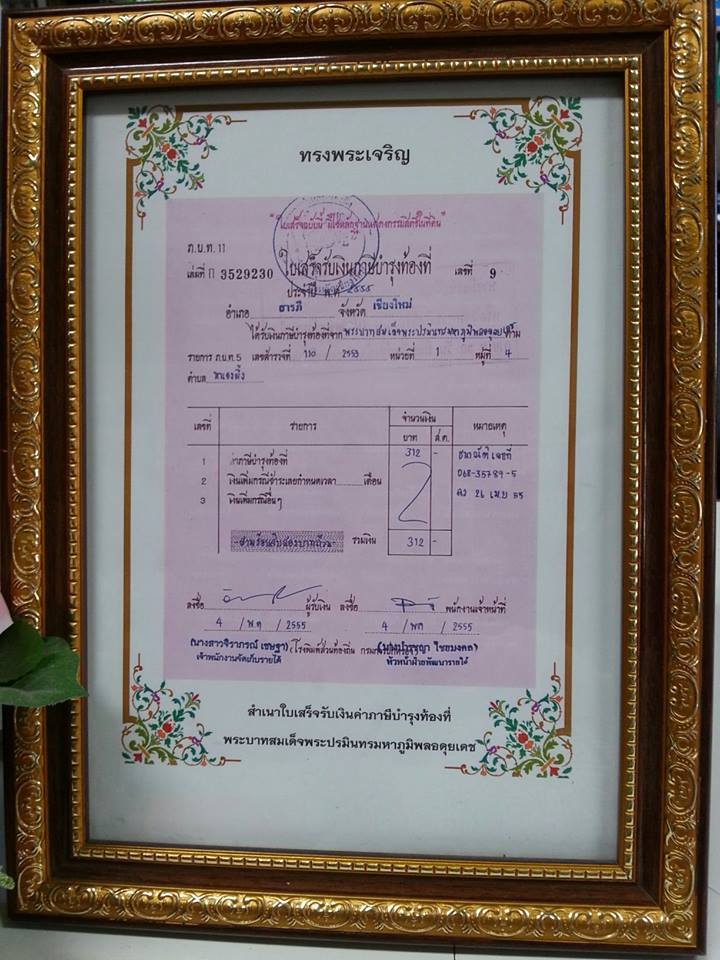 ทรงพระเจริญ
"ใบเสร็จฉบับนี้ มิใช่หลักฐานแสดงกรรมสิทธิ์ในที่ดิน"
ภ.บ.ท. 11
เล่มที่ ก 3529230 ใบเสร็จรับเงินภาษีบำรุงท้องที่ เลขที่ 9
ประจำปี พ.ศ. 2555
อำเภอ สารภี จังหวัด เชียงใหม่
ได้รับเงินภาษีบำรุงท้องที่จาก พระบาทสมเด็จพระปรมินทรมหาภูมิพลอดุลยเดช ตาม
รายการ ภ.บ.ท. 5 เลขสำรวจที่ 110 / 2553 หน่วยที่ 1 หมู่ที่ 4
ตำบล หนองผึ้ง
เลขที่ รายการ จำนวนเงิน หมายเหตุ
บาท ส.ต.
1 ค่าภาษีบำรุงท้องที่ 312 - ธนาณัติเลขที่
2 เงินเพิ่มกรณีชำระเกินกำหนดเวลา เดือน 068-35789-5
3 เงินเพิ่มกรณีอื่นๆ ลว 26 เม.ย 55
-สามร้อยสิบสองบาทถ้วน- รวมเงิน 312 -
ลงชื่อ ผู้รับเงิน ลงชื่อ พนักงานเจ้าหน้าที่
4 / พ.ค / 2555 4 / พค / 2555
(นางสาวจิราภรณ์ เชษฐา) (โรงพิมพ์ส่วนท้องถิ่น ไชยมงคล)
เจ้าพนักงานจัดเก็บรายได้ หัวหน้าฝ่ายพัฒนารายได้
สำเนาใบเสร็จรับเงินค่าภาษีบำรุงท้องที่
พระบาทสมเด็จพระปรมินทรมหาภูมิพลอดุยเดช